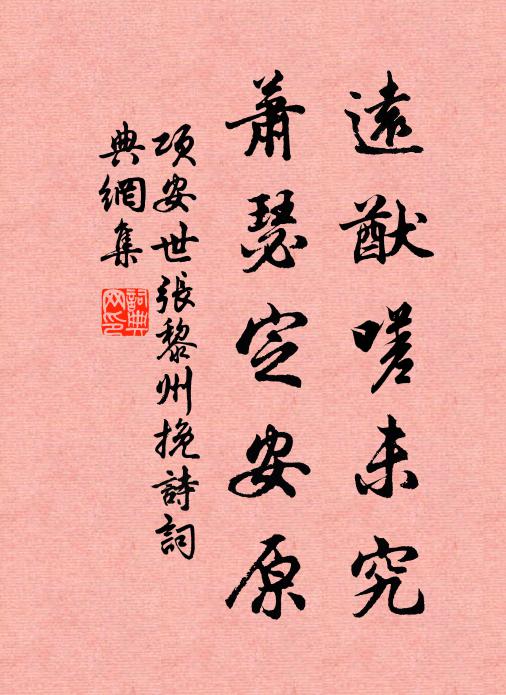 遠猷嗟未究
蕭瑟定安原
項安世張黎州挽詩詞
典網集
詞典網印